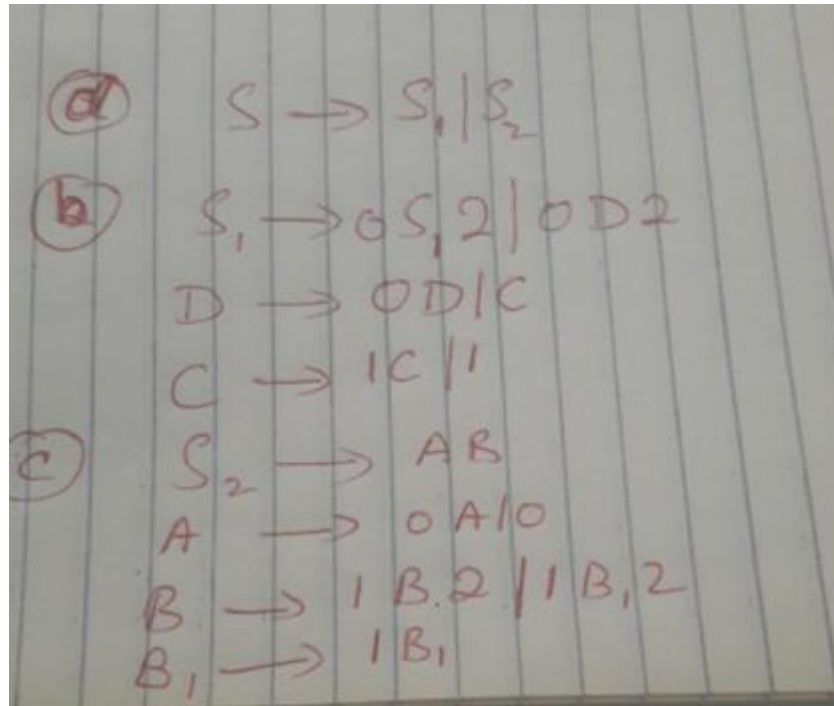 (a) S → S₁|S₂
(b) S₁ → 0S₁2|0D2
D → 0D|C
C → 1C|1
(c) S₂ → AB
A → 0A|0
B → 1B2|1B₁2
B₁ → 1B₁